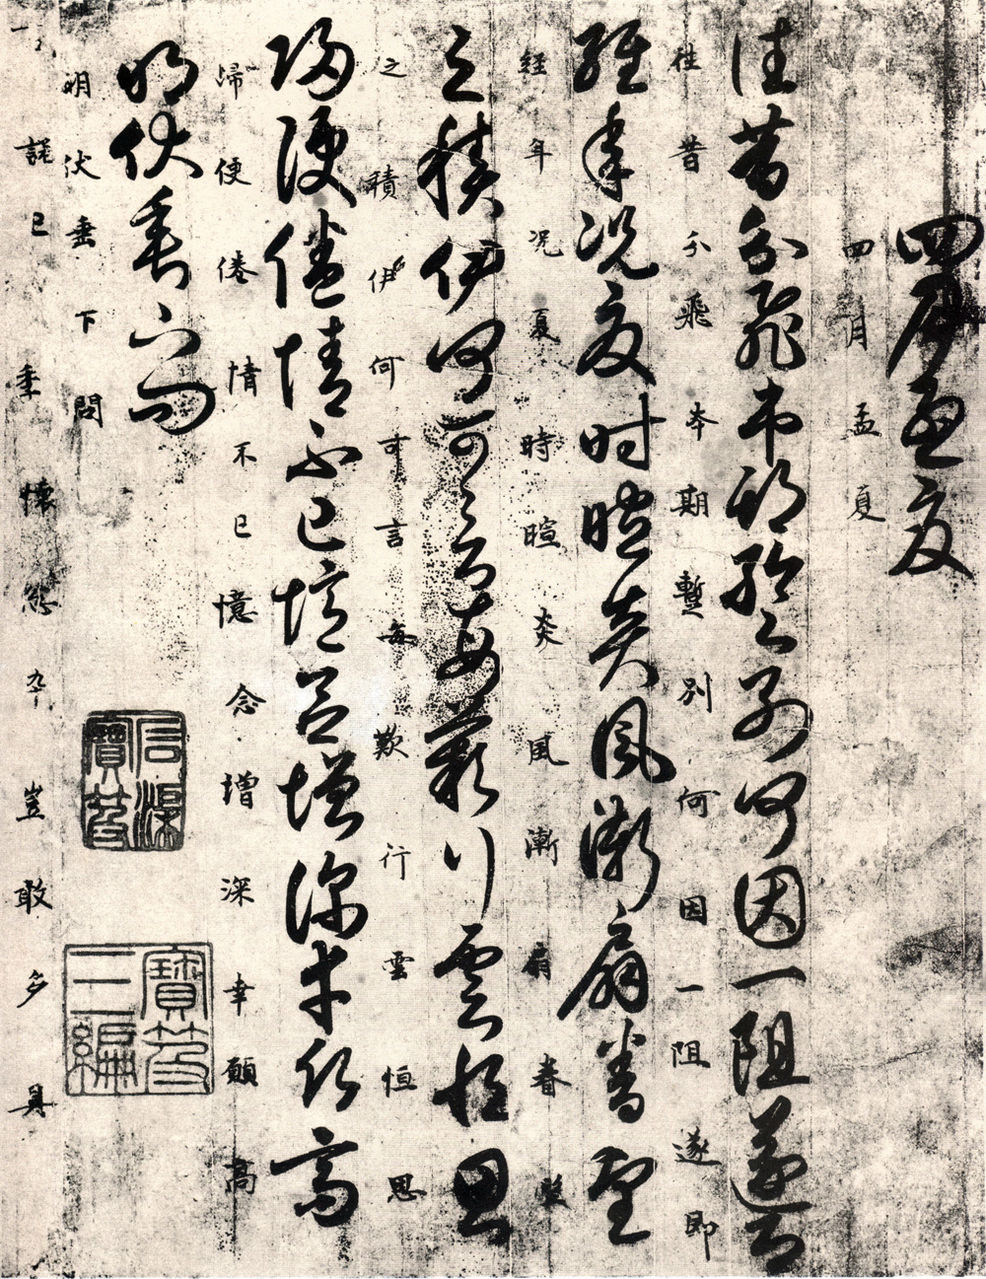 四月孟夏
四月孟夏
往昔分飛本期暫別何因一阻遂即
往昔分飛本期暫別何因一阻遂即
經年況夏時暄炎風漸扇眷望
經年況夏時暄炎風漸扇眷望
之積伊何可言每歎行雲恒思
之積伊何可言每歎行雲恒思
歸便倦情不已憶念增深幸願高
歸便倦情不已憶念增深幸願高
明伏垂下問
明伏垂下問
石渠寶笈
寶笈三編
一已垂懷豈敢多具